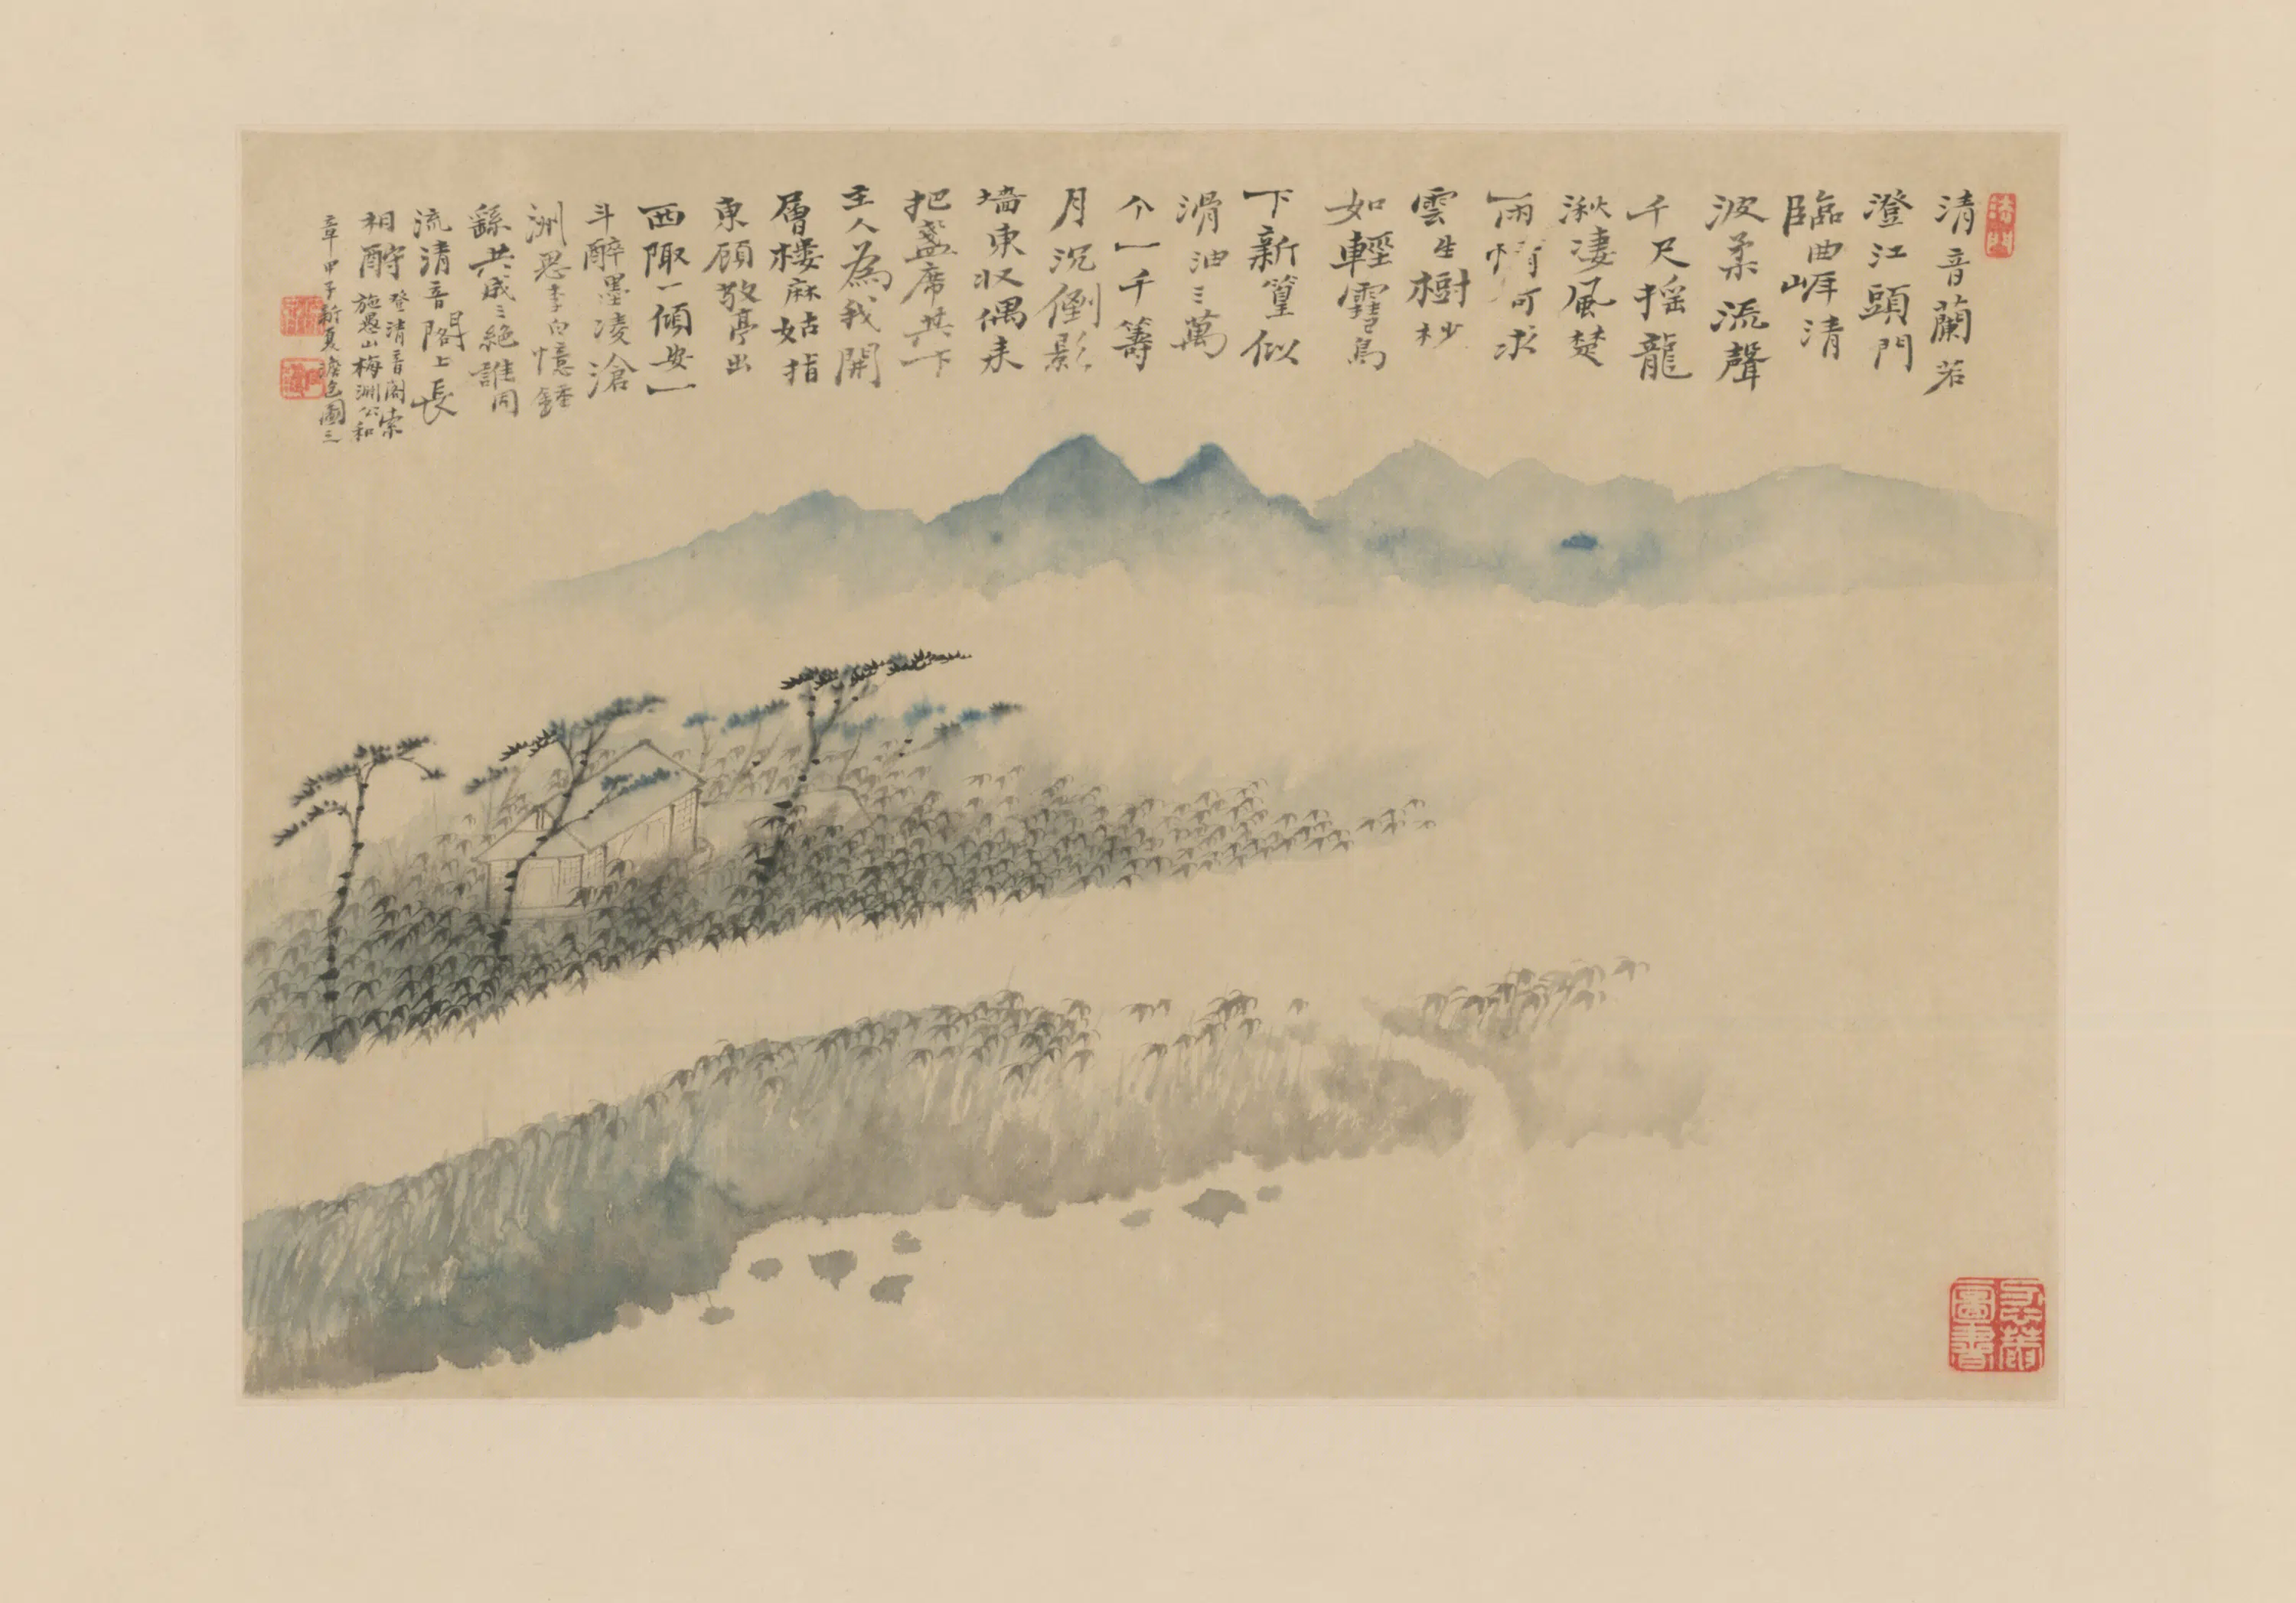 清音蘭若
澄江頭門
臨曲崕清
波柔流聲
千尺摇龍
湫凄風楚
雨情可求
雲生樹杪
如輕靄鳥
下新篁似
滑油三萬
个一千籌
月沉倒影
墙東収偶来
把盞席共一下
主人為我開
層楼麻姑指
東顧敬亭出
西陬一傾安一
斗醉墨凌滄
洲思李白憶鍾
繇共成三絶誰同
流清音閣上長
相酹
登清音閣索
施愚山梅淵公和
章甲子新夏澹色圖之
圖書